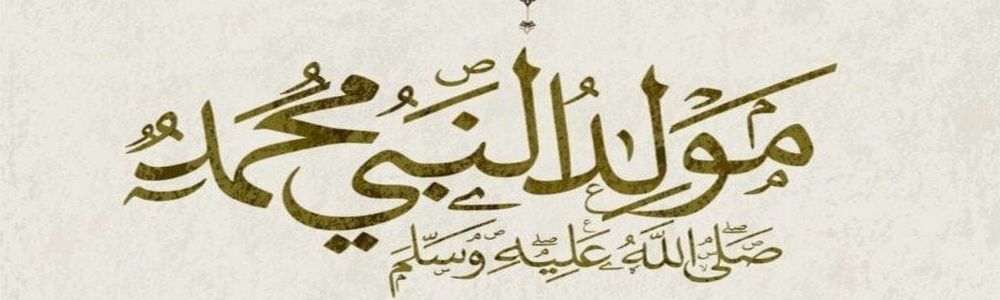 مَولِدُ النَّبِي مُحَمَّدٍ
صَلَّى اللَّهُ عَلَيْهِ وَسَلَّم